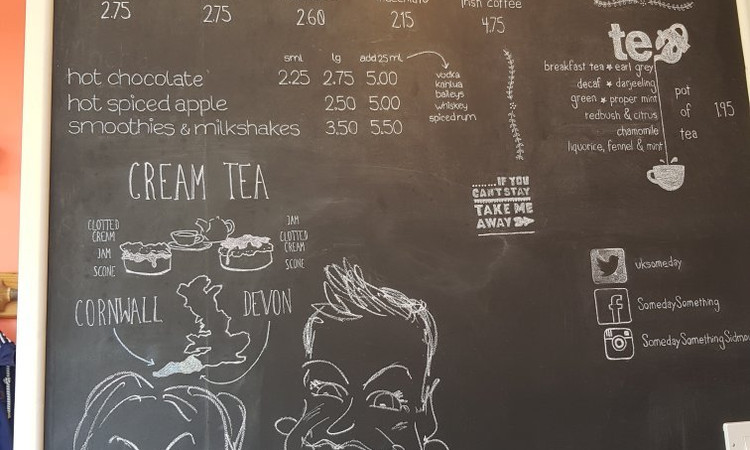 2.75 2.75 2.60 2.15 4.75
irish coffee
sml lg add 25ml
hot chocolate 2.25 2.75 5.00
hot spiced apple 2.50 5.00
smoothies & milkshakes 3.50 5.50
vodka
kahlua
baileys
whiskey
spiced rum
tea
breakfast tea * earl grey
decaf * darjeeling
green * proper mint
redbush & citrus
chamomile
liquorice, fennel & mint
pot
of 1.95
tea
CREAM TEA
CLOTTED
CREAM
JAM
SCONE
JAM
CLOTTED
CREAM
SCONE
CORNWALL
DEVON
.......IF YOU
CAN'T STAY
TAKE ME
AWAY
uksomeday
f SomedaySomething
SomedaySomethingSidmo